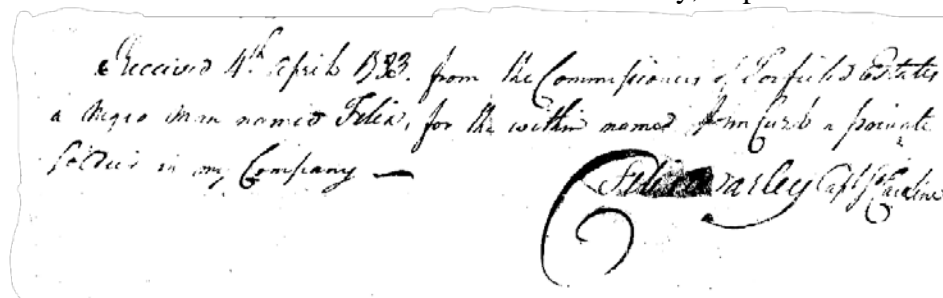 Received 4th April 1783. from the Commissioners of Forfeited Estates
a Negro Man named Felix, for the within named a private
Soldier in my Company —
Felix Warley Capt